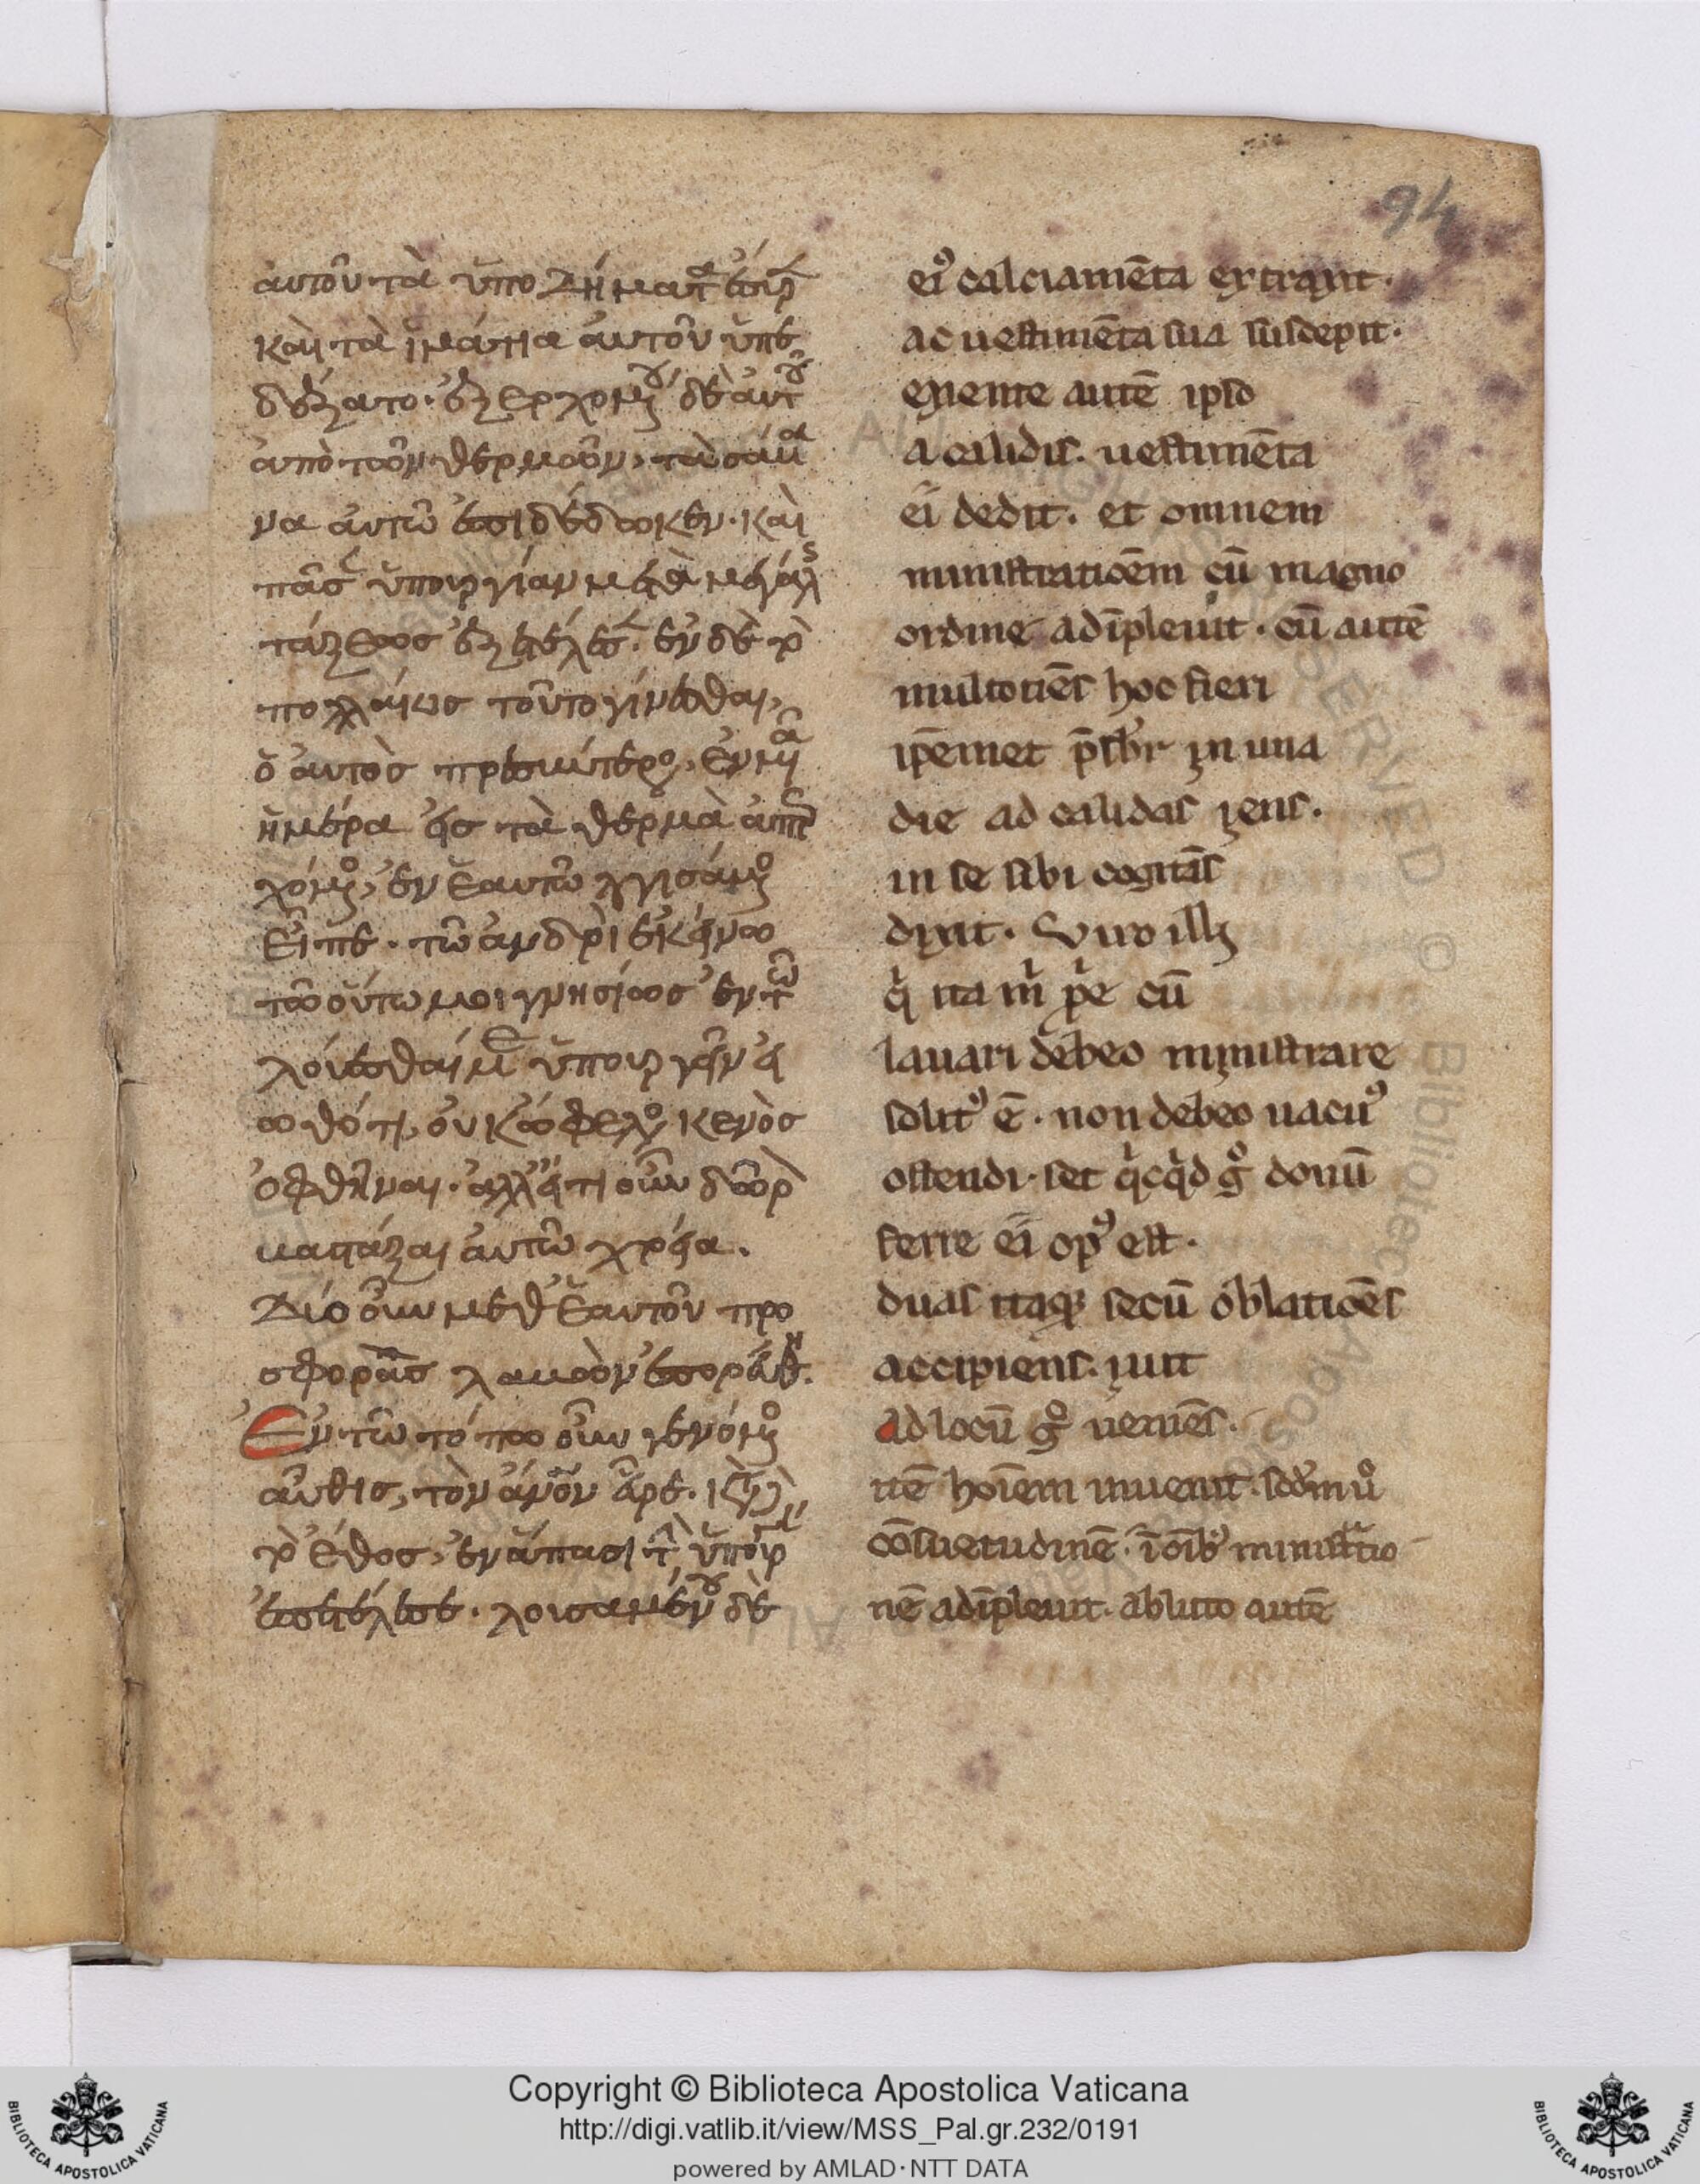 94
αυτοῦ τὰ ὑποδήματ
καὶ τὰ ἱμάτια αυτοῦ ὑπε
δέξατο· ἐξερχομ δὲ αὐτ
ἀπὸ τῶν θερμῶν, τὰ σάμ
να αὐτῶ ἐπιδέδωκεν· καὶ
πᾶσ ὑπουργίαν μετὰ μεγάλ
τάξεωσ ἐξετέλεσ· ἐν δὲ τὸ
πολλάκισ τοῦτο γίνεσθαι,
ὁ αυτὸσ πρεσβύτερο, ἐν μι
ἡμέρα εἰσ τὰ θερμὰ ἀπερ
χόμ, ἐν ἑαυτῶ λογισάμ
εἶπε· τῶ ἀνδρὶ ἐκείνω
τῶ οὕτω μοι γνησίωσ ἐν τ
λούεσθαί μ ὑπουργεῖν εἰ
ωθότι, οὐκ ὤφειλο κενὸσ
ὀφθῆναι· ἀλλ' εἴ τι οὖν δῶρ
κατάξαι αὐτῶ χρεία.
Δύο οὖν μεθ' ἑαυτοῦ προ
σφορὰσ λαβὼν ἐπορεύθ.
Ἐν τῶ τόπω οὖν γενόμ
αὖθισ, τὸν ἄνον εὗρε·
τὸ ἔθοσ, ἐν ἅπασι τ ὑπουρ
ἐπετέλεσε· λουσαμέν δὲ
ei9 calciamēta extraxit·
ac uestimēta sua suscepit·
exeunte autē ipso
a calidis· uestimēta
ei dedit· et omnem
ministratioēm cū magno
ordine adīpleuit· cū autē
multotiēs hoc fieri
ipēmet p̄sbr in una
die ad calidas iens·
in se sibi cogitās
dixit· Viro illi
q ita m pe cū
lauari debeo ministrare
solit9 ē· non debeo uacu9
ostendi· set qcqd g donū
ferre ei op9 est·
duas itaq secū oblatioēs
accipiens· iuit
ad locū g ueniēs·
itē hoīem inuenit· scdm
cōsuetudinē· ī oīb ministratio
nē adīpleuit· abluto autē
Copyright © Biblioteca Apostolica Vaticana
http://digi.vatlib.it/view/MSS_Pal.gr.232/0191
powered by AMLAD·NTT DATA
BIBLIOTECA APOSTOLICA VATICANA
BIBLIOTECA APOSTOLICA VATICANA